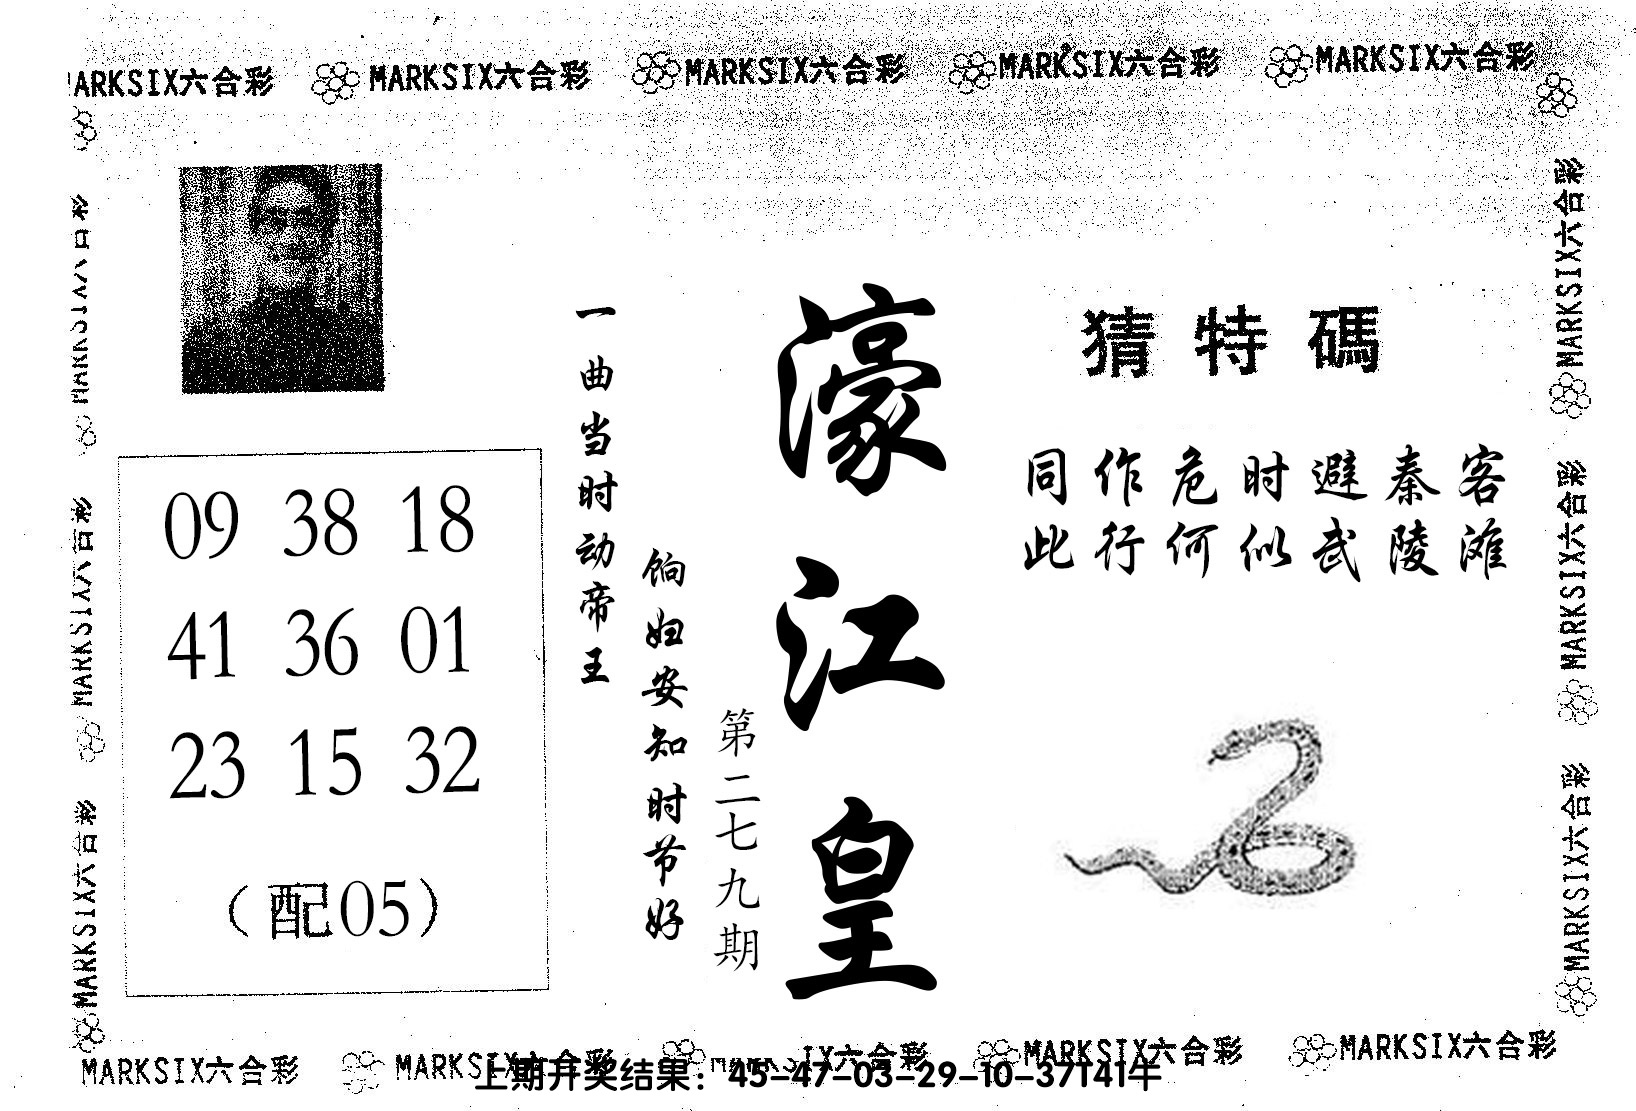 MARKSIX六合彩 MARKSIX六合彩 MARKSIX六合彩 MARKSIX六合彩 MARKSIX六合彩
猜特碼
同作危时避秦客
此行何似武陵滩
濠江皇
第二七九期
饷妇安知时节好
一曲当时动帝王
09 38 18
41 36 01
23 15 32
（配05）
MARKSIX六合彩
MARKSIX六合彩
MARKSIX六合彩
MARKSIX六合彩
MARKSIX六合彩
MARKSIX六合彩
MARKSIX六合彩 MARKSIX六合彩 MARKSIX六合彩 MARKSIX六合彩 MARKSIX六合彩
上期开奖结果：45-47-03-29-10-37T41午